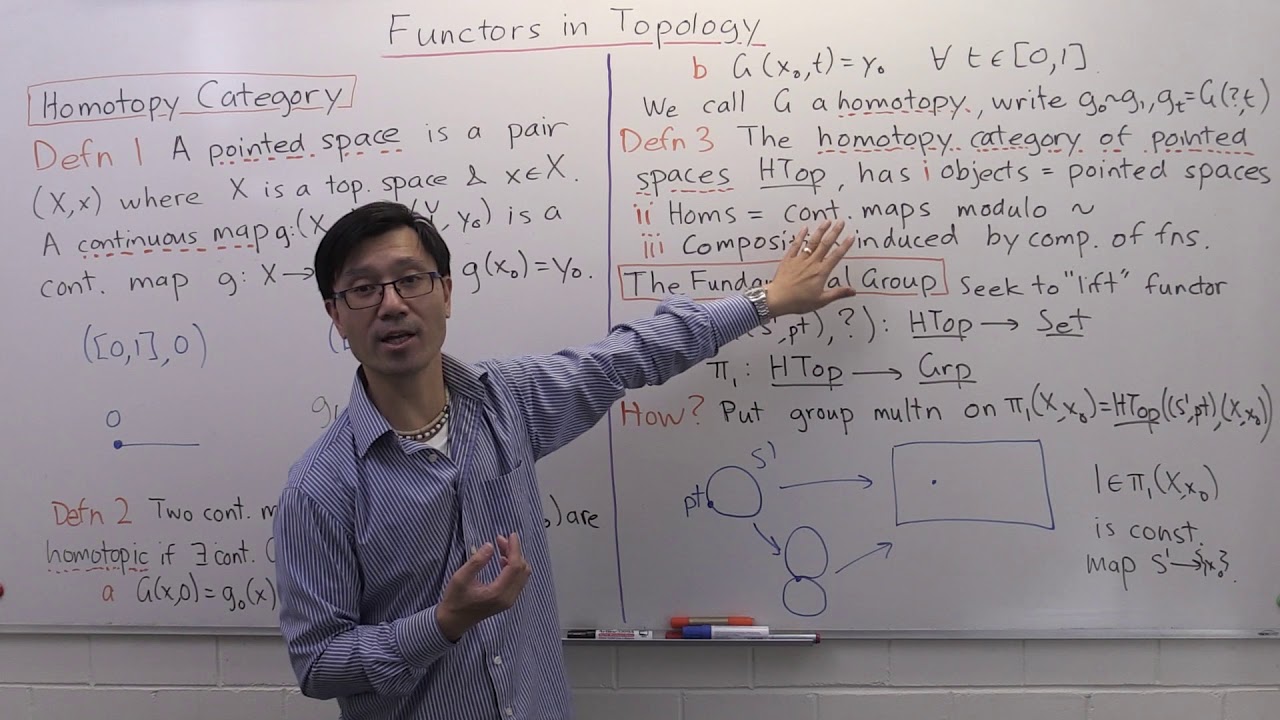 Functors in Topology
Homotopy Category
Defn 1 A pointed space is a pair
(X,x) where X is a top. space & x∈X.
A continuous map g:(X y₀) is a
cont. map g: X→ g(x₀)=y₀.
([0,1],0)
0
Defn 2 Two cont. ) are
homotopic if ∃ cont.
a G(x,0)=g₀(x)
b G(x₀,t)=y₀ ∀ t∈[0,1]
We call G a homotopy, write g₀~g₁, gₜ=G(?,t)
Defn 3 The homotopy category of pointed
spaces HTop, has i objects = pointed spaces
ii Homs = cont. maps modulo ~
iii induced by comp. of fns.
The Group Seek to "lift" functor
(S¹,pt),?): HTop → Set
π₁: HTop → Grp
How? Put group multn on π₁(X,x₀)=HTop((S¹,pt),(X,x₀))
S¹
pt
1∈π₁(X,x₀)
is const.
map S¹→{x₀}